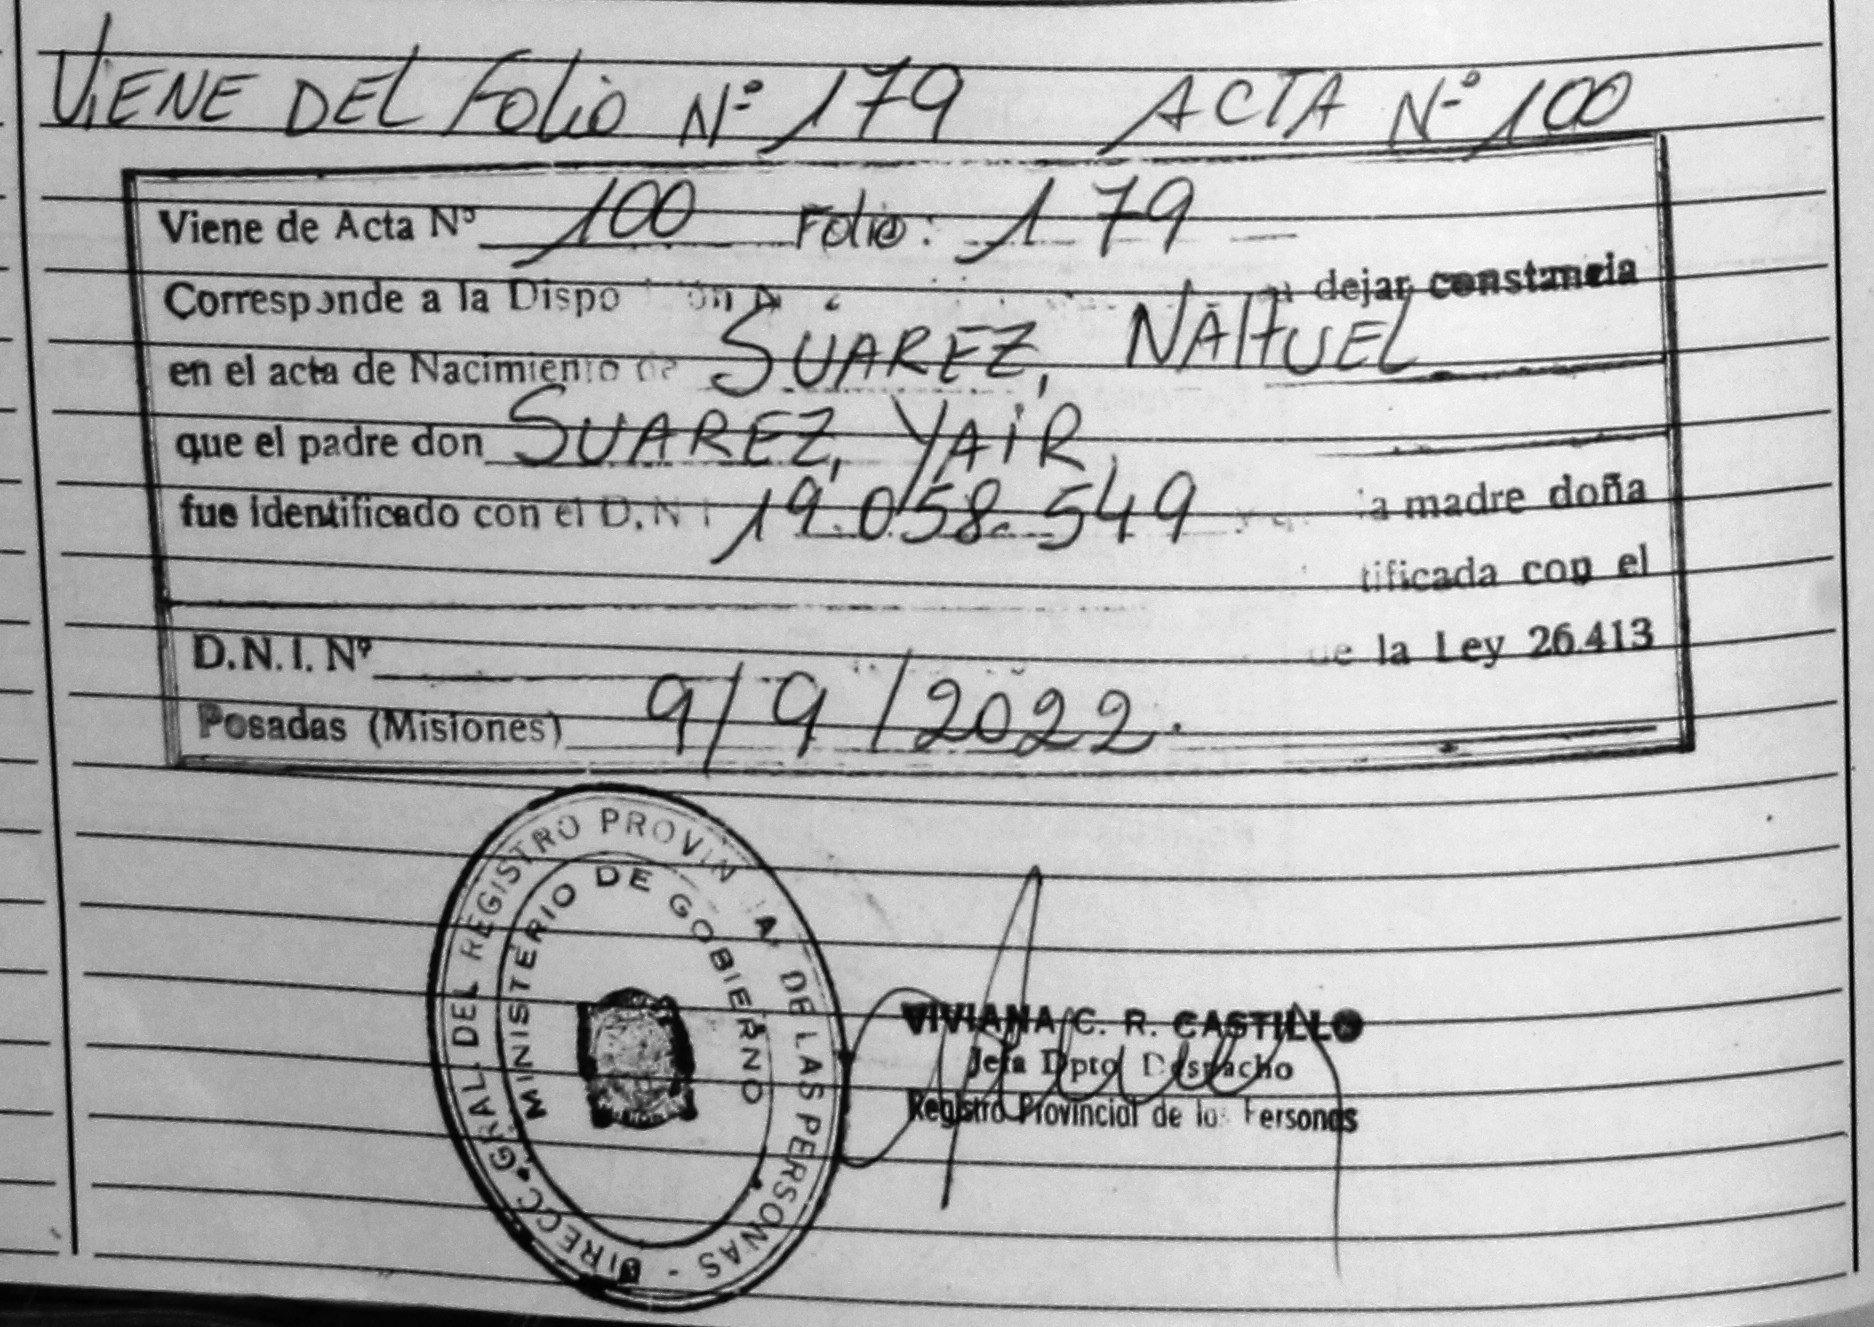 VIENE DEL FOLIO Nº 179 ACTA Nº 100
Viene de Acta Nº 100 Folio: 179
Corresponde a la dejar constancia
en el acta de Nacimiento de SUAREZ, NAHUEL
que el padre don SUAREZ, YAIR
fue identificado con el D.N.I 19.058.549 madre doña
con el
D.N.I. Nº la Ley 26.413
Posadas (Misiones) 9/9/2022.
DIRECC. GRAL. DEL REGISTRO DE LAS PERSONAS -
MINISTERIO DE GOBIERNO
VIVIANA C. R. CASTILLO
Jefa Dpto Despacho
Registro Provincial de las Personas